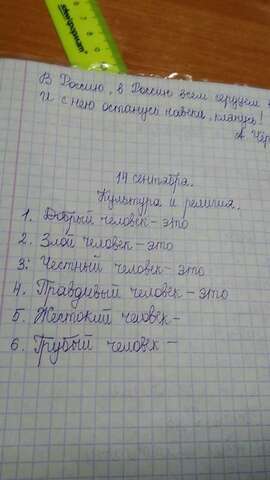 В Россию, в Россию всем сердцем
И с нею останусь навеки, клянусь!
А. Чер
14 сентября.
Культура и религия.
1. Добрый человек - это
2. Злой человек - это
3. Честный человек - это
4. Правдивый человек - это
5. Жестокий человек -
6. Грубый человек -